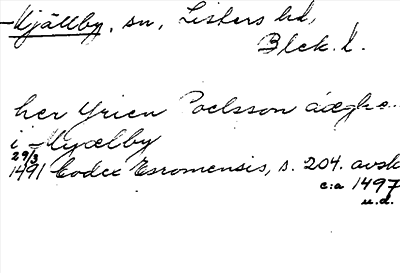 Mjällby, sn, Listers hd,
Blek. l.
her Yrien Poelsson aæghe..
i Myælby
29/3
1491 Codex Esromensis, s. 204. avsk
c:a 1497
u.d.